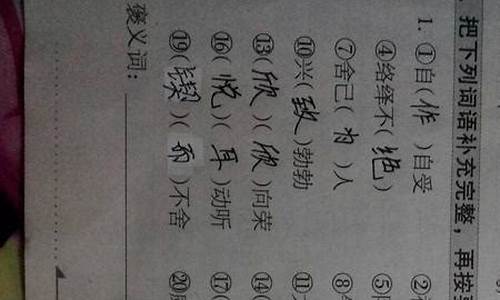 把下列词语补充完整，再按
1. ①自(作)自受 ②
④络绎不(绝) ⑤
⑦舍己(为)人 ⑧
⑩兴(致)勃勃 ⑪
⑬(欣)(欣)向荣 ⑭
⑯(悦)(耳)动听 ⑰
⑲(锲)(而)不舍 ⑳
褒义词：